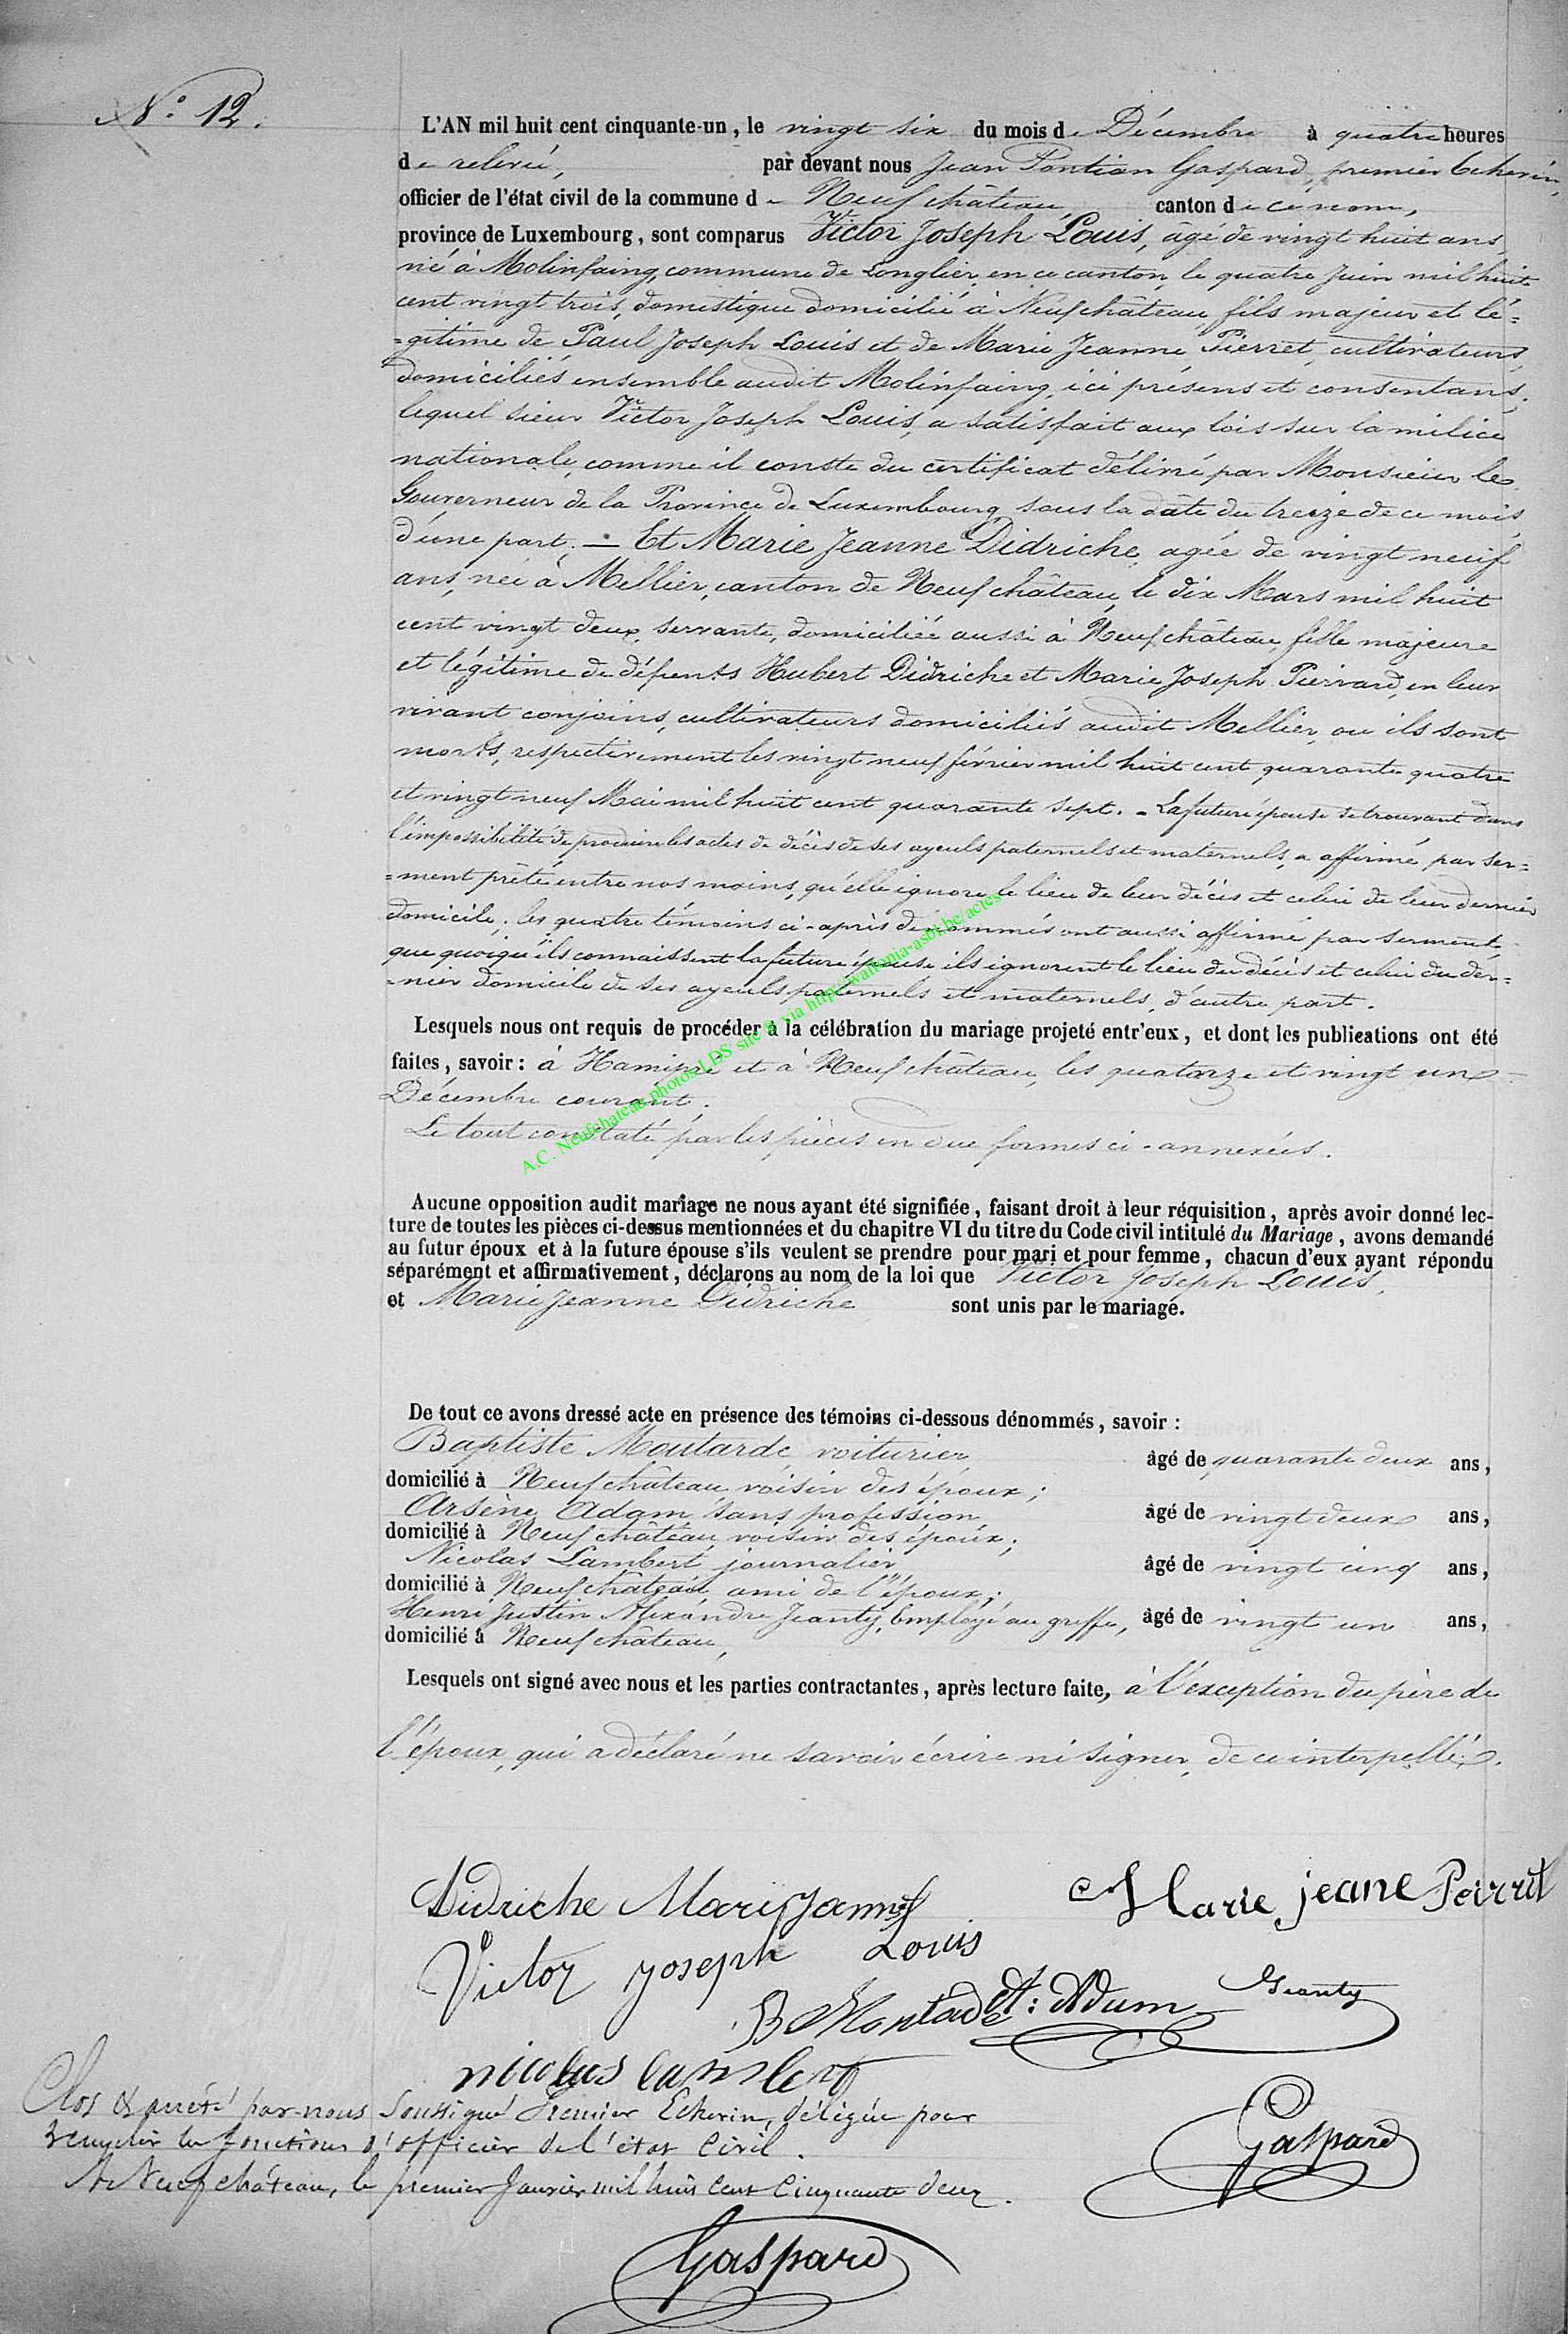 N.° 12.
L'AN mil huit cent cinquante-un, le vingt six du mois de Décembre à quatre heures
de relevée, par devant nous Jean Pontian Gaspard, premier Echevin,
officier de l'état civil de la commune de Neufchâteau, canton de ce nom,
province de Luxembourg, sont comparus Victor Joseph Louis, âgé de vingt huit ans,
né à Molinfaing, commune de Longlier, en ce canton, le quatre Juin mil huit
cent vingt trois, domestique domicilié à Neufchâteau, fils majeur et lé=
=gitime de Paul Joseph Louis et de Marie Jeanne Pierret, cultivateurs,
domiciliés ensemble audit Molinfaing, ici présens et consentans;
lequel sieur Victor Joseph Louis, a satisfait aux lois sur la milice
nationale, comme il conste du certificat délivré par Monsieur le
Gouverneur de la Province de Luxembourg sous la date du treize de ce mois
d'une part. — Et Marie Jeanne Didriche, agée de vingt neuf
ans, née à Mellier, canton de Neufchâteau, le dix Mars mil huit
cent vingt deux, servante, domiciliée aussi à Neufchâteau, fille majeure
et légitime de défunts Hubert Didriche et Marie Joseph Pierrard, en leur
vivant conjoins, cultivateurs domiciliés audit Mellier, ou ils sont
morts, respectivement les vingt neuf février mil huit cent quarante quatre
et vingt neuf Mai mil huit cent quarante sept. - La future épouse se trouvant dans
l'impossibilité de produire les actes de décès de ses ayeuls paternels et maternels, a affirmé par ser=
=ment prêté entre nos mains, qu'elle ignore le lieu de leur décès et celui de leur dernier
domicile; les quatre témoins ci-après dénommés ont aussi affirmé par serment,
que quoiqu'ils connaissent la future épouse ils ignorent le lieu du décès et celui du der=
=nier domicile de ses ayeuls paternels et maternels, d'autre part.
Lesquels nous ont requis de procéder à la célébration du mariage projeté entr'eux, et dont les publications ont été
faites, savoir: à Hamipré et à Neufchâteau, les quatorze et vingt un
Décembre courant.
Le tout constaté par les pièces en due formes ci-annexées.
A.C. Neufchateau photos LDS site via http://wallonia-asbl.be/actes
Aucune opposition audit mariage ne nous ayant été signifiée, faisant droit à leur réquisition, après avoir donné lec-
ture de toutes les pièces ci-dessus mentionnées et du chapitre VI du titre du Code civil intitulé du Mariage, avons demandé
au futur époux et à la future épouse s'ils veulent se prendre pour mari et pour femme, chacun d'eux ayant répondu
séparément et affirmativement, déclarons au nom de la loi que Victor Joseph Louis,
et Marie Jeanne Didriche sont unis par le mariage.
De tout ce avons dressé acte en présence des témoins ci-dessous dénommés, savoir:
Baptiste Moutarde, voiturier âgé de quarante deux ans,
domicilié à Neufchâteau, voisin des époux;
Arsène Adam, sans profession, âgé de vingt deux ans,
domicilié à Neufchâteau, voisin des époux;
Nicolas Lambert, journalier, âgé de vingt cinq ans,
domicilié à Neufchâteau, ami de l'époux;
Henri Justin Alexandre Jeanty, Employé au greffe, âgé de vingt un ans,
domicilié à Neufchâteau,
Lesquels ont signé avec nous et les parties contractantes, après lecture faite, à l'exception du père de
l'époux, qui a déclaré ne savoir écrire ni signer, de ce interpellé.
Didriche Marie Janne
Marie jeane Peirrit
Victor joseph Louis
B Moutade
A: Adam
Jeanty
nicolas lambert
Clos & arrêté par nous soussigné Premier Echevin, délégué pour
remplir les fonctions d'officier de l'état civil.
A Neufchâteau, le premier Janvier mil huit cent cinquante deux.
Gaspard
Gaspard